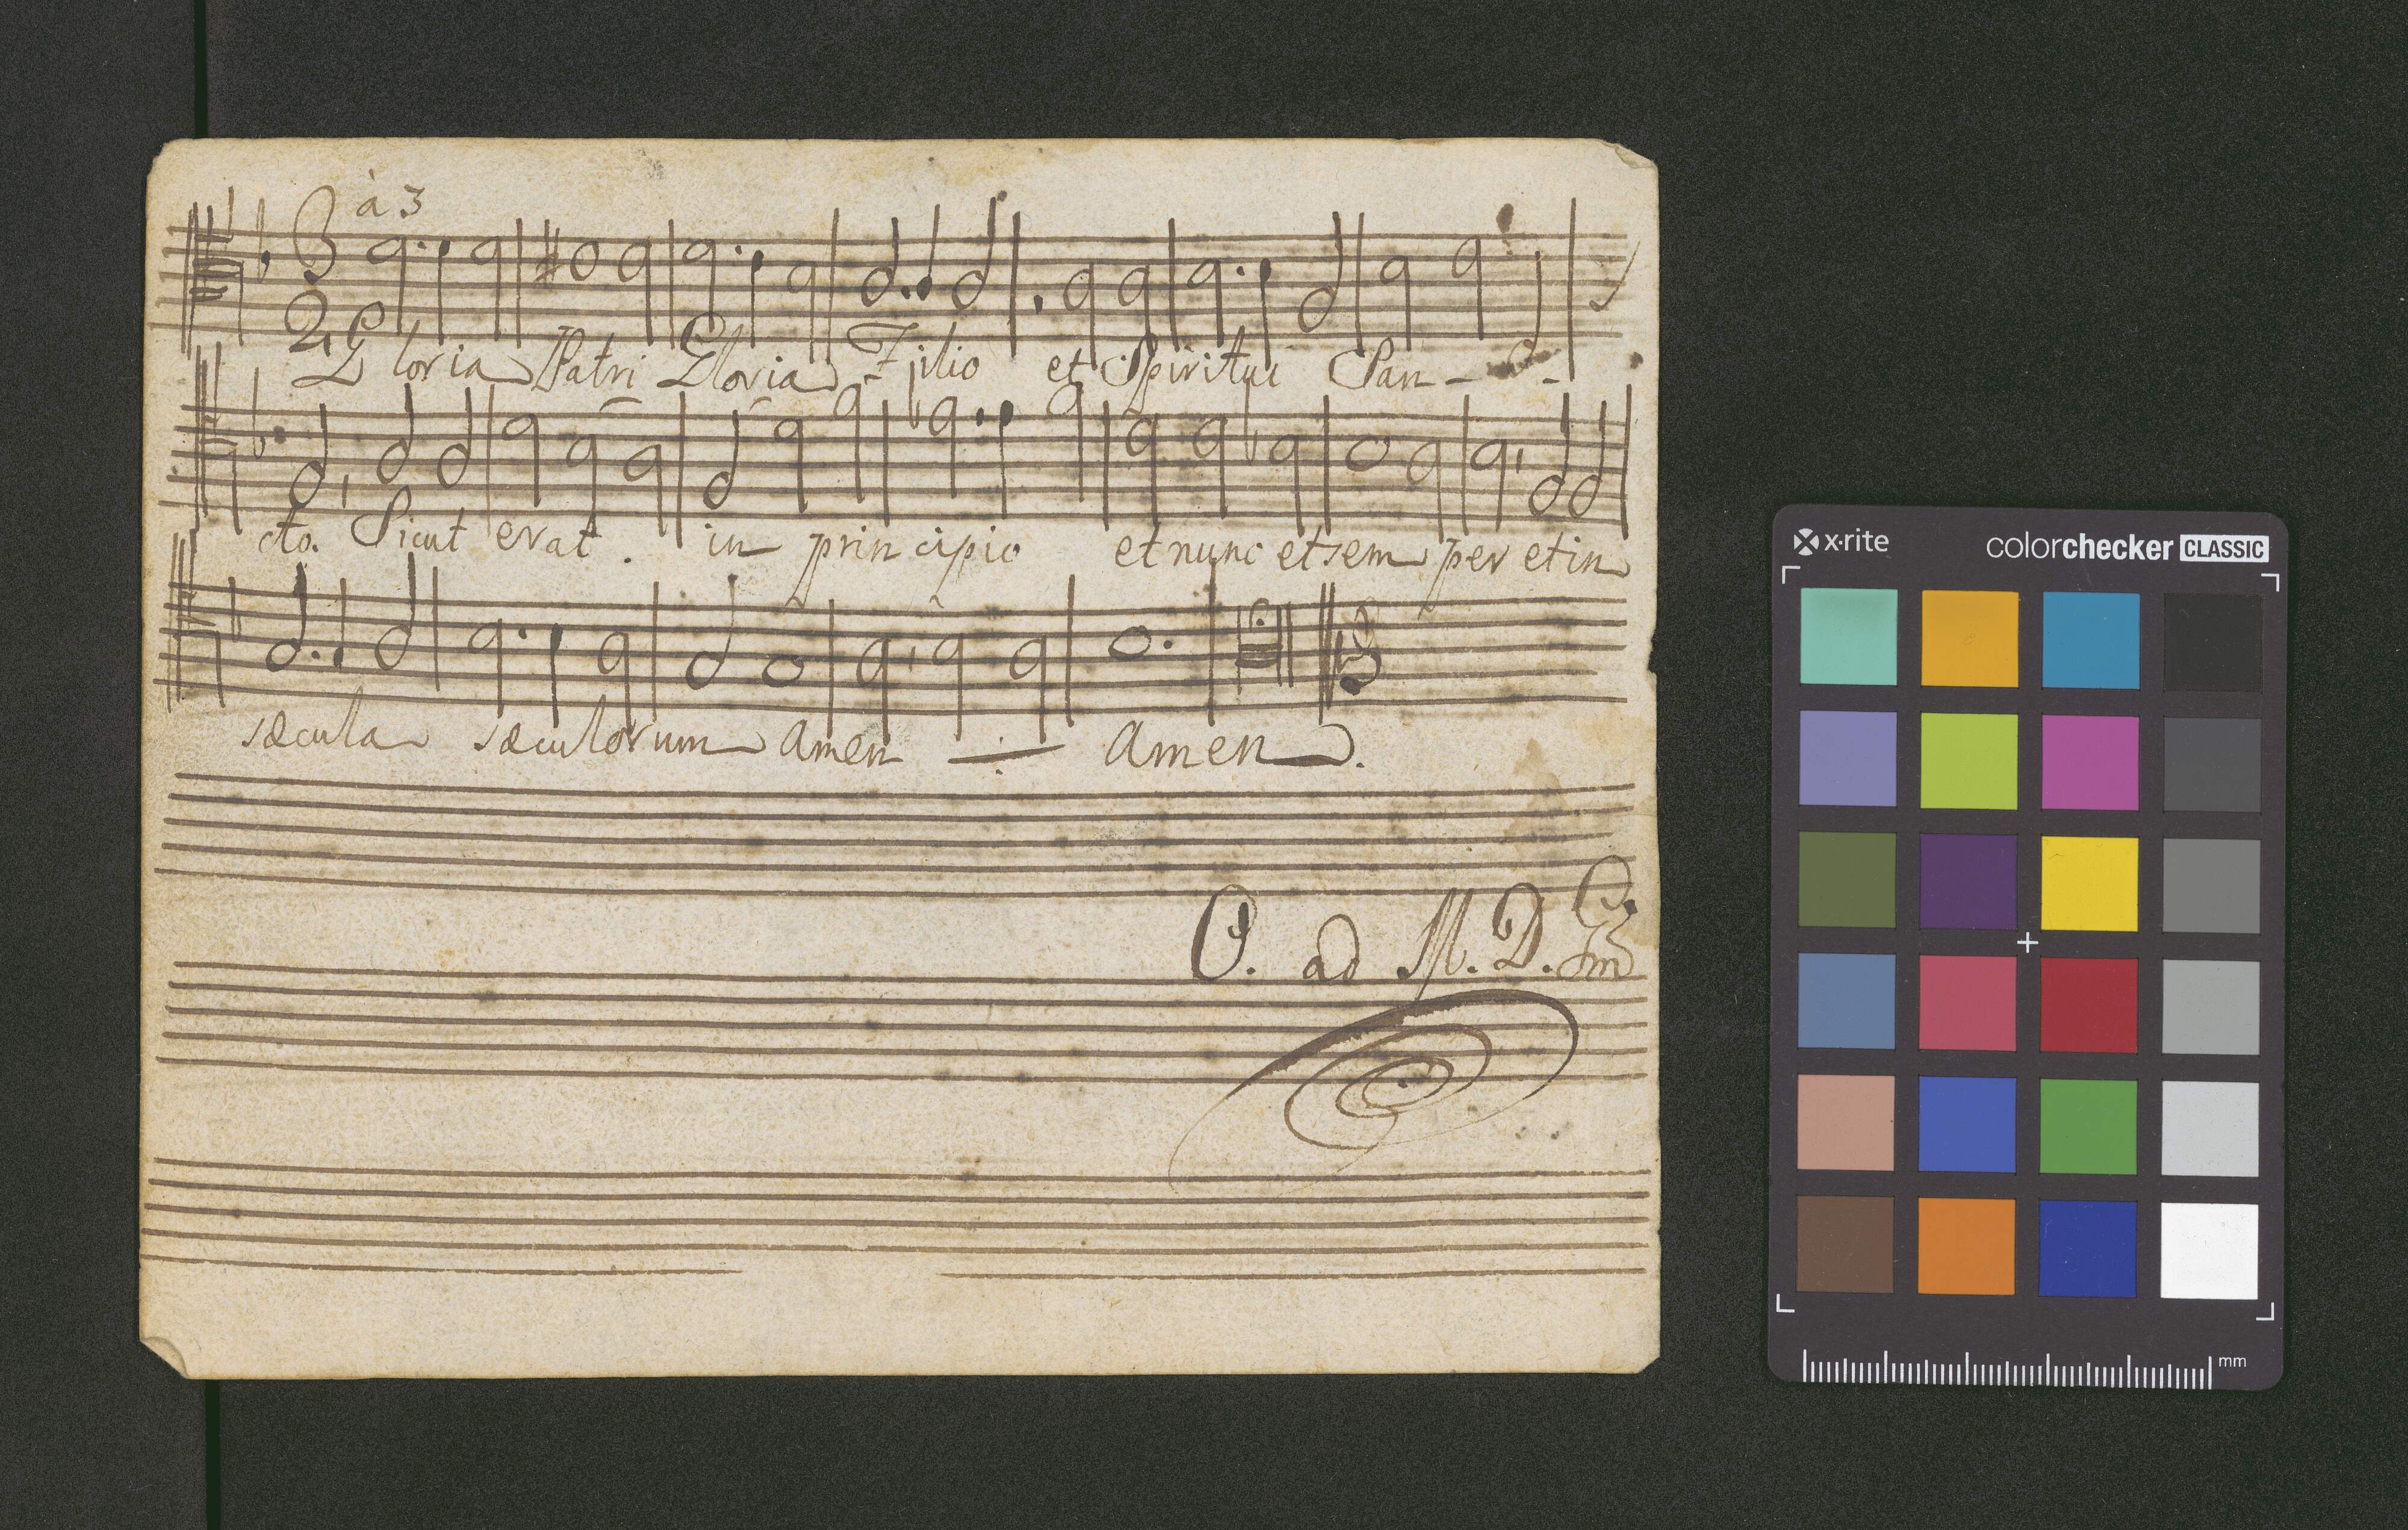 à 3
3
2
Gloria Patri Gloria Filio et Spiritui San-
cto. Sicut erat . in principio et nunc et sem per et in
sæcula sæculorum Amen Amen.
O. ad M. D. G.
x·rite colorchecker CLASSIC
mm